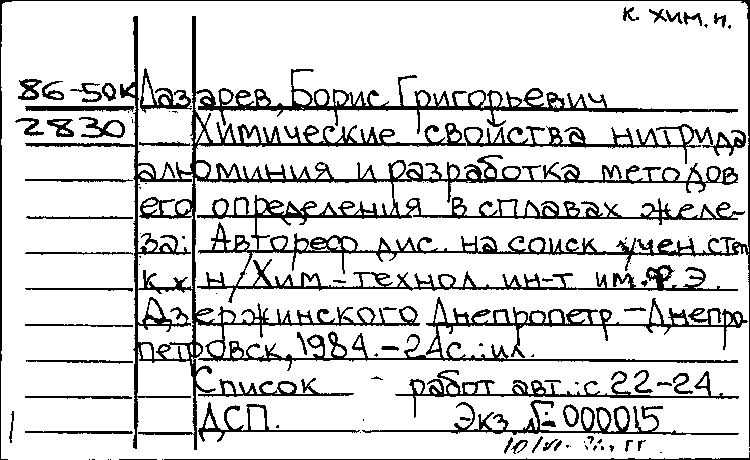 к. хим. н.
86-50к Лазарев, Борис Григорьевич
2830 Химические свойства нитрида
алюминия и разработка методов
его определения в сплавах желе-
за: Автореф дис. на соиск учен. степ
к. х н / Хим.-технол. ин-т им. Ф. Э.
Дзержинского Днепропетр. - Днепро-
петровск, 1984. - 24с.: ил.
Список работ авт.: с. 22-24.
ДСП. Экз. № 000015.